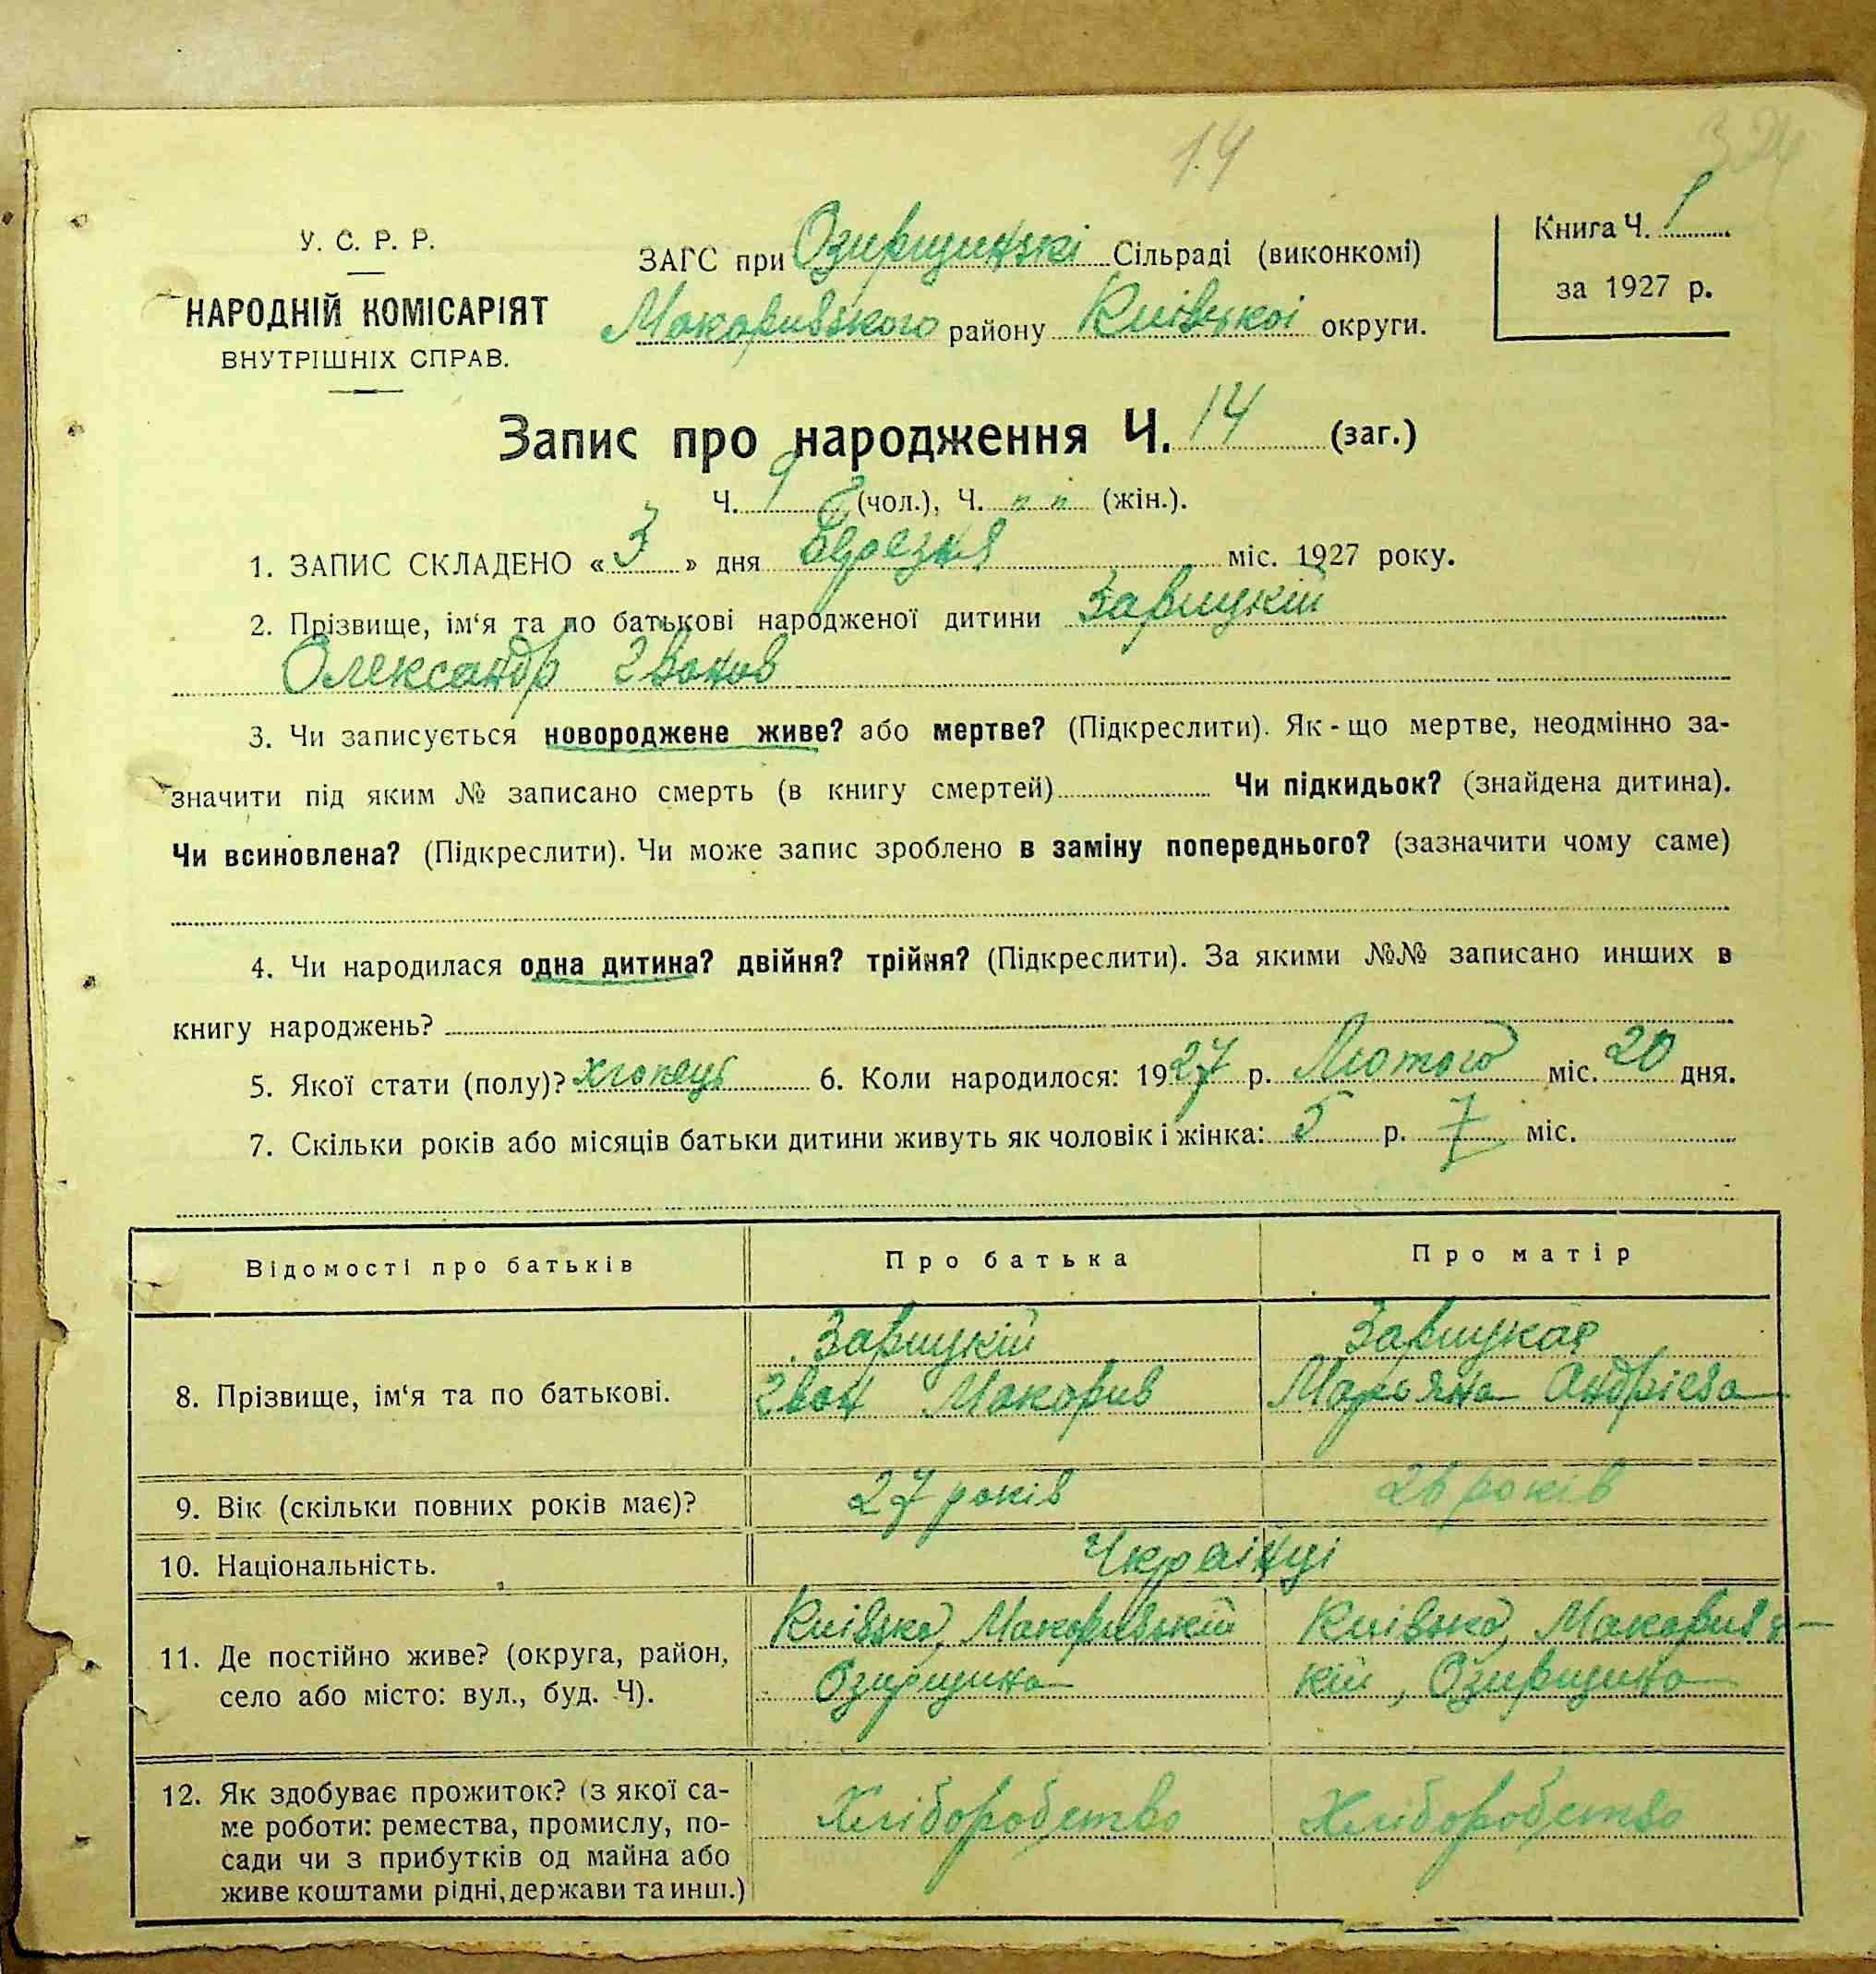 14
324
У. С. Р. Р.
НАРОДНІЙ КОМІСАРІЯТ
ВНУТРІШНІХ СПРАВ.
ЗАГС при Озирщинскі Сільраді (виконкомі)
Макоривского району Киівскоі округи.
Книга Ч. 1
за 1927 р.
Запис про народження Ч. 14 (заг.)
Ч. 9 (чол.), Ч. " " (жін.).
1. ЗАПИС СКЛАДЕНО « 3 » дня Березня міс. 1927 року.
2. Прізвище, ім‘я та по батькові народженої дитини Зарицкій
Олександр Іванов
3. Чи записується новороджене живе? або мертве? (Підкреслити). Як - що мертве, неодмінно за-
значити під яким № записано смерть (в книгу смертей) Чи підкидьок? (знайдена дитина).
Чи всиновлена? (Підкреслити). Чи може запис зроблено в заміну попереднього? (зазначити чому саме)
4. Чи народилася одна дитина? двійня? трійня? (Підкреслити). За якими №№ записано инших в
книгу народжень?
5. Якої стати (полу)? хлопець 6. Коли народилося: 1927 р. Лютого міс. 20 дня.
7. Скільки років або місяців батьки дитини живуть як чоловік і жінка: 5 р. 7 міс.
Відомості про батьків Про батька Про матір
8. Прізвище, ім‘я та по батькові.
Зарицкій
Іван Макорив
Зарицкая
Марьяна Андріева
9. Вік (скільки повних років має)? 27 років 26 років
10. Національність. Украінці
11. Де постійно живе? (округа, район,
село або місто: вул., буд. Ч).
Киівска, Макоривскій
Озирщина
Киівска, Макоривс-
кій, Озирщина
12. Як здобуває прожиток? (з якої са-
ме роботи: ремества, промислу, по-
сади чи з прибутків од майна або
живе коштами рідні, держави та инш.)
Хліборобство
Хліборобство